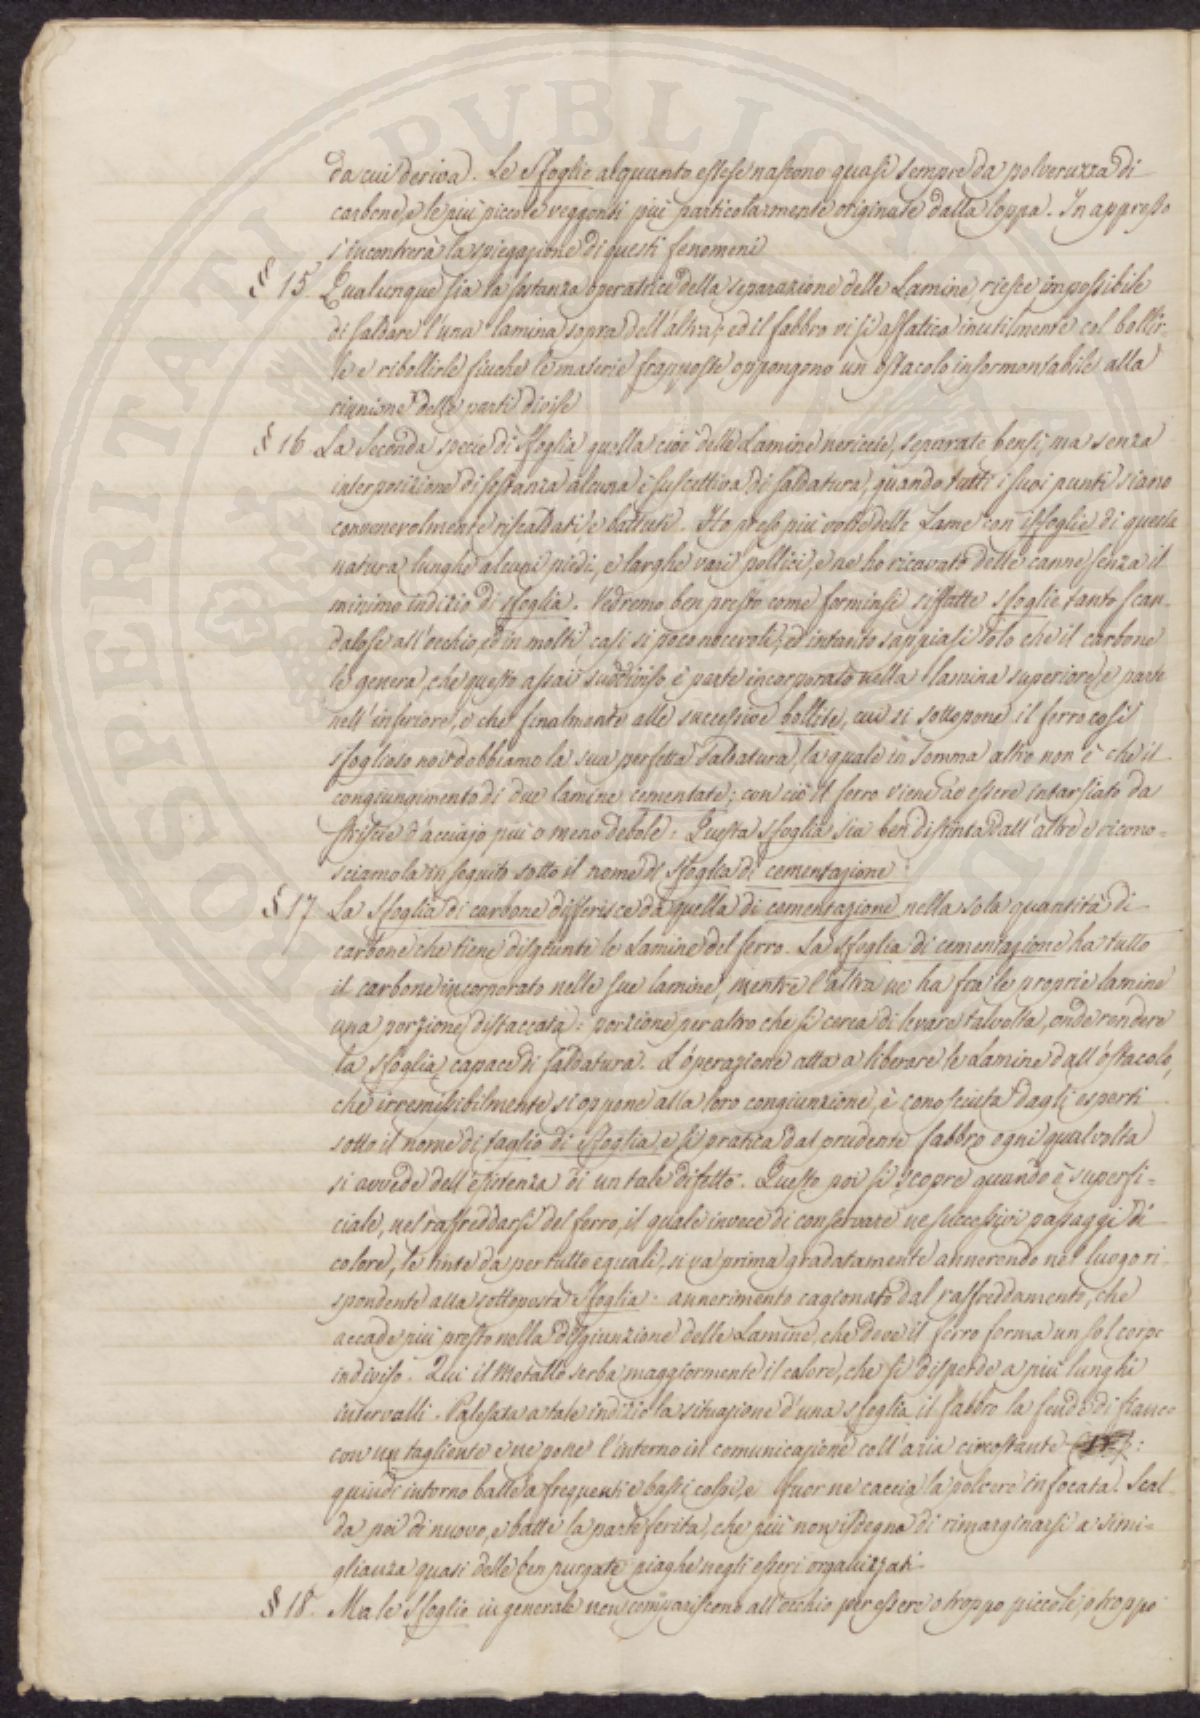 da cui deriva. Le sfoglie alquanto estese nascono quasi sempre da polveruzza di
carbone, e le piu piccole veggonsi piu particolarmente originate dalla loppa. In appresso
s'incontrerà la spiegazione di questi fenomeni
§ 15 Qualunque sia la sostanza operatrice della separazione delle Lamine, riesce impossibile
di saldare l'una lamina sopra dell'altra; ed il fabbro vi si affatica inutilmente col bollir-
le e ribollirle finche le materie frapposte oppongono un ostacolo insormontabile alla
riunione delle parti divise
§ 16 La Seconda specie di sfoglia quella cioè delle Lamine nericcie, separate bensi, ma senza
interposizione di sostanza alcuna è suscettiva di saldatura, quando tutti i suoi punti siano
convenevolmente riscaldati, e battuti. Ho preso più volte delle Lame con isfoglie di questa
natura lunghe alcuni piedi, e larghe varj pollici, e ne ho ricavato delle canne senza il
minimo indizio di sfoglia. Vedremo ben presto come forminsi siffatte sfoglie tanto scan-
dalose all'occhio, ed in molti casi si poco nocevoli; ed intanto sappiasi solo che il carbone
le genera, che questo assai suddiviso è parte incorporato nella lamina superiore, e parte
nell'inferiore, e che finalmente alle successive bollite, cui si sottopone il ferro così
sfoglioso noi dobbiamo la sua perfetta saldatura, la quale in somma altro non è che il
congiungimento di due lamine cementate; con ciò il ferro viene ad essere intarsiato da
striscie d'acciajo più o meno debole: Questa sfoglia sia ben distinta dall'altre e ricono-
sciamola in seguito sotto il nome di sfoglia di cementazione
§ 17 La Sfoglia di carbone differisce da quella di cementazione nella sola quantità di
carbone che tiene disgiunte le Lamine del ferro. La sfoglia di cementazione ha tutto
il carbone incorporato nelle sue lamine, mentre l'altra ne ha fra le proprie lamine
una porzione distaccata: porzione per altro che si cerca di levare talvolta, onde rendere
la sfoglia capace di saldatura. L'operazione atta a liberare le Lamine dall'ostacolo,
che irremisibilmente si oppone alla loro congiunzione, è conosciuta dagli esperti
sotto il nome di taglio di sfoglia e si pratica dal prudente fabbro ogni qualvolta
si avvede dell'esistenza di un tale difetto. Questo poi si scopre quando è superfi-
ciale, nel raffreddarsi del ferro, il quale invece di conservare ne successivi passaggi di
colore, le tinte da per tutto eguali, si va prima gradatamente annerendo nel luogo ri-
spondente alla sottoposta sfoglia: annerimento cagionato dal raffreddamento, che
accade più presto nella disgiunzione delle Lamine, che dove il ferro forma un sol corpo
indiviso. Qui il Metallo serba maggiormente il calore, che si disperde a più lunghi
intervalli. Palesata a tale indizio la situazione d'una sfoglia il fabbro la fende di fianco
con un tagliente e ne pone l'interno in comunicazione coll'aria circostante:
quindi intorno batte a frequenti e bassi colpi, e fuor ne caccia la polvere infocata. Scal-
da poi di nuovo, e batte la parte ferita, che più non isdegna di rimarginarsi a simi-
glianza quasi delle ben purgate piaghe negli esseri organizzati
§ 18. Ma le Sfoglie in generale non compariscono all'occhio per essere o troppo piccole, o troppo